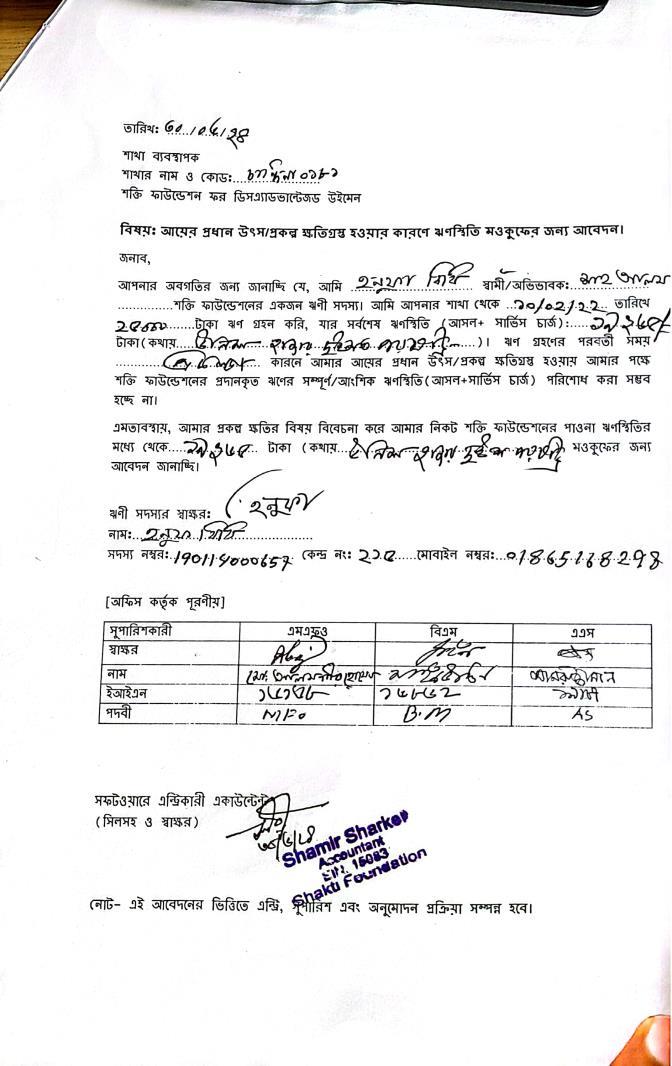 তারিখ: ৩০/০৬/২৪
শাখা ব্যবস্থাপক
শাখার নাম ও কোড:
শক্তি ফাউন্ডেশন ফর ডিসএ্যাডভান্টেজড উইমেন
বিষয়: আয়ের প্রধান উৎস/প্রকল্প ক্ষতিগ্রস্থ হওয়ার কারণে ঋণস্থিতি মওকুফের জন্য আবেদন।
জনাব,
আপনার অবগতির জন্য জানাচ্ছি যে, আমি হনুফা বিবি স্বামী/অভিভাবক: শাহ আলম
শক্তি ফাউন্ডেশনের একজন ঋণী সদস্য। আমি আপনার শাখা থেকে ২০/০২/২২ তারিখে
২৫০০০ টাকা ঋণ গ্রহন করি, যার সর্বশেষ ঋণস্থিতি (আসল+ সার্ভিস চার্জ):
টাকা (কথায় )। ঋণ গ্রহণের পরবর্তী সময়
কারনে আমার আয়ের প্রধান উৎস/প্রকল্প ক্ষতিগ্রস্থ হওয়ায় আমার পক্ষে
শক্তি ফাউন্ডেশনের প্রদানকৃত ঋণের সম্পূর্ণ/আংশিক ঋণস্থিতি(আসল+সার্ভিস চার্জ) পরিশোধ করা সম্ভব
হচ্ছে না।
এমতাবস্থায়, আমার প্রকল্প ক্ষতির বিষয় বিবেচনা করে আমার নিকট শক্তি ফাউন্ডেশনের পাওনা ঋণস্থিতির
মধ্যে থেকে টাকা (কথায় মওকুফের জন্য
আবেদন জানাচ্ছি।
ঋণী সদস্যর স্বাক্ষর: হনুফা
নাম: হনুফা বিবি
সদস্য নম্বর: 190114000657 কেন্দ্র নং: মোবাইল নম্বর: 01865168298
[অফিস কর্তৃক পূরণীয়]
সুপারিশকারী এমএফও বিএম এএস
স্বাক্ষর
নাম মো: আলমগীর হোসেন
ইআইএন
পদবী MFO B.M AS
সফটওয়ারে এন্ট্রিকারী একাউন্টেন্ট
(সিলসহ ও স্বাক্ষর)
Shamir Sharker
Accountant
EIN. 15083
Shakti Foundation
নোট- এই আবেদনের ভিত্তিতে এন্ট্রি, সুপারিশ এবং অনুমোদন প্রক্রিয়া সম্পন্ন হবে।